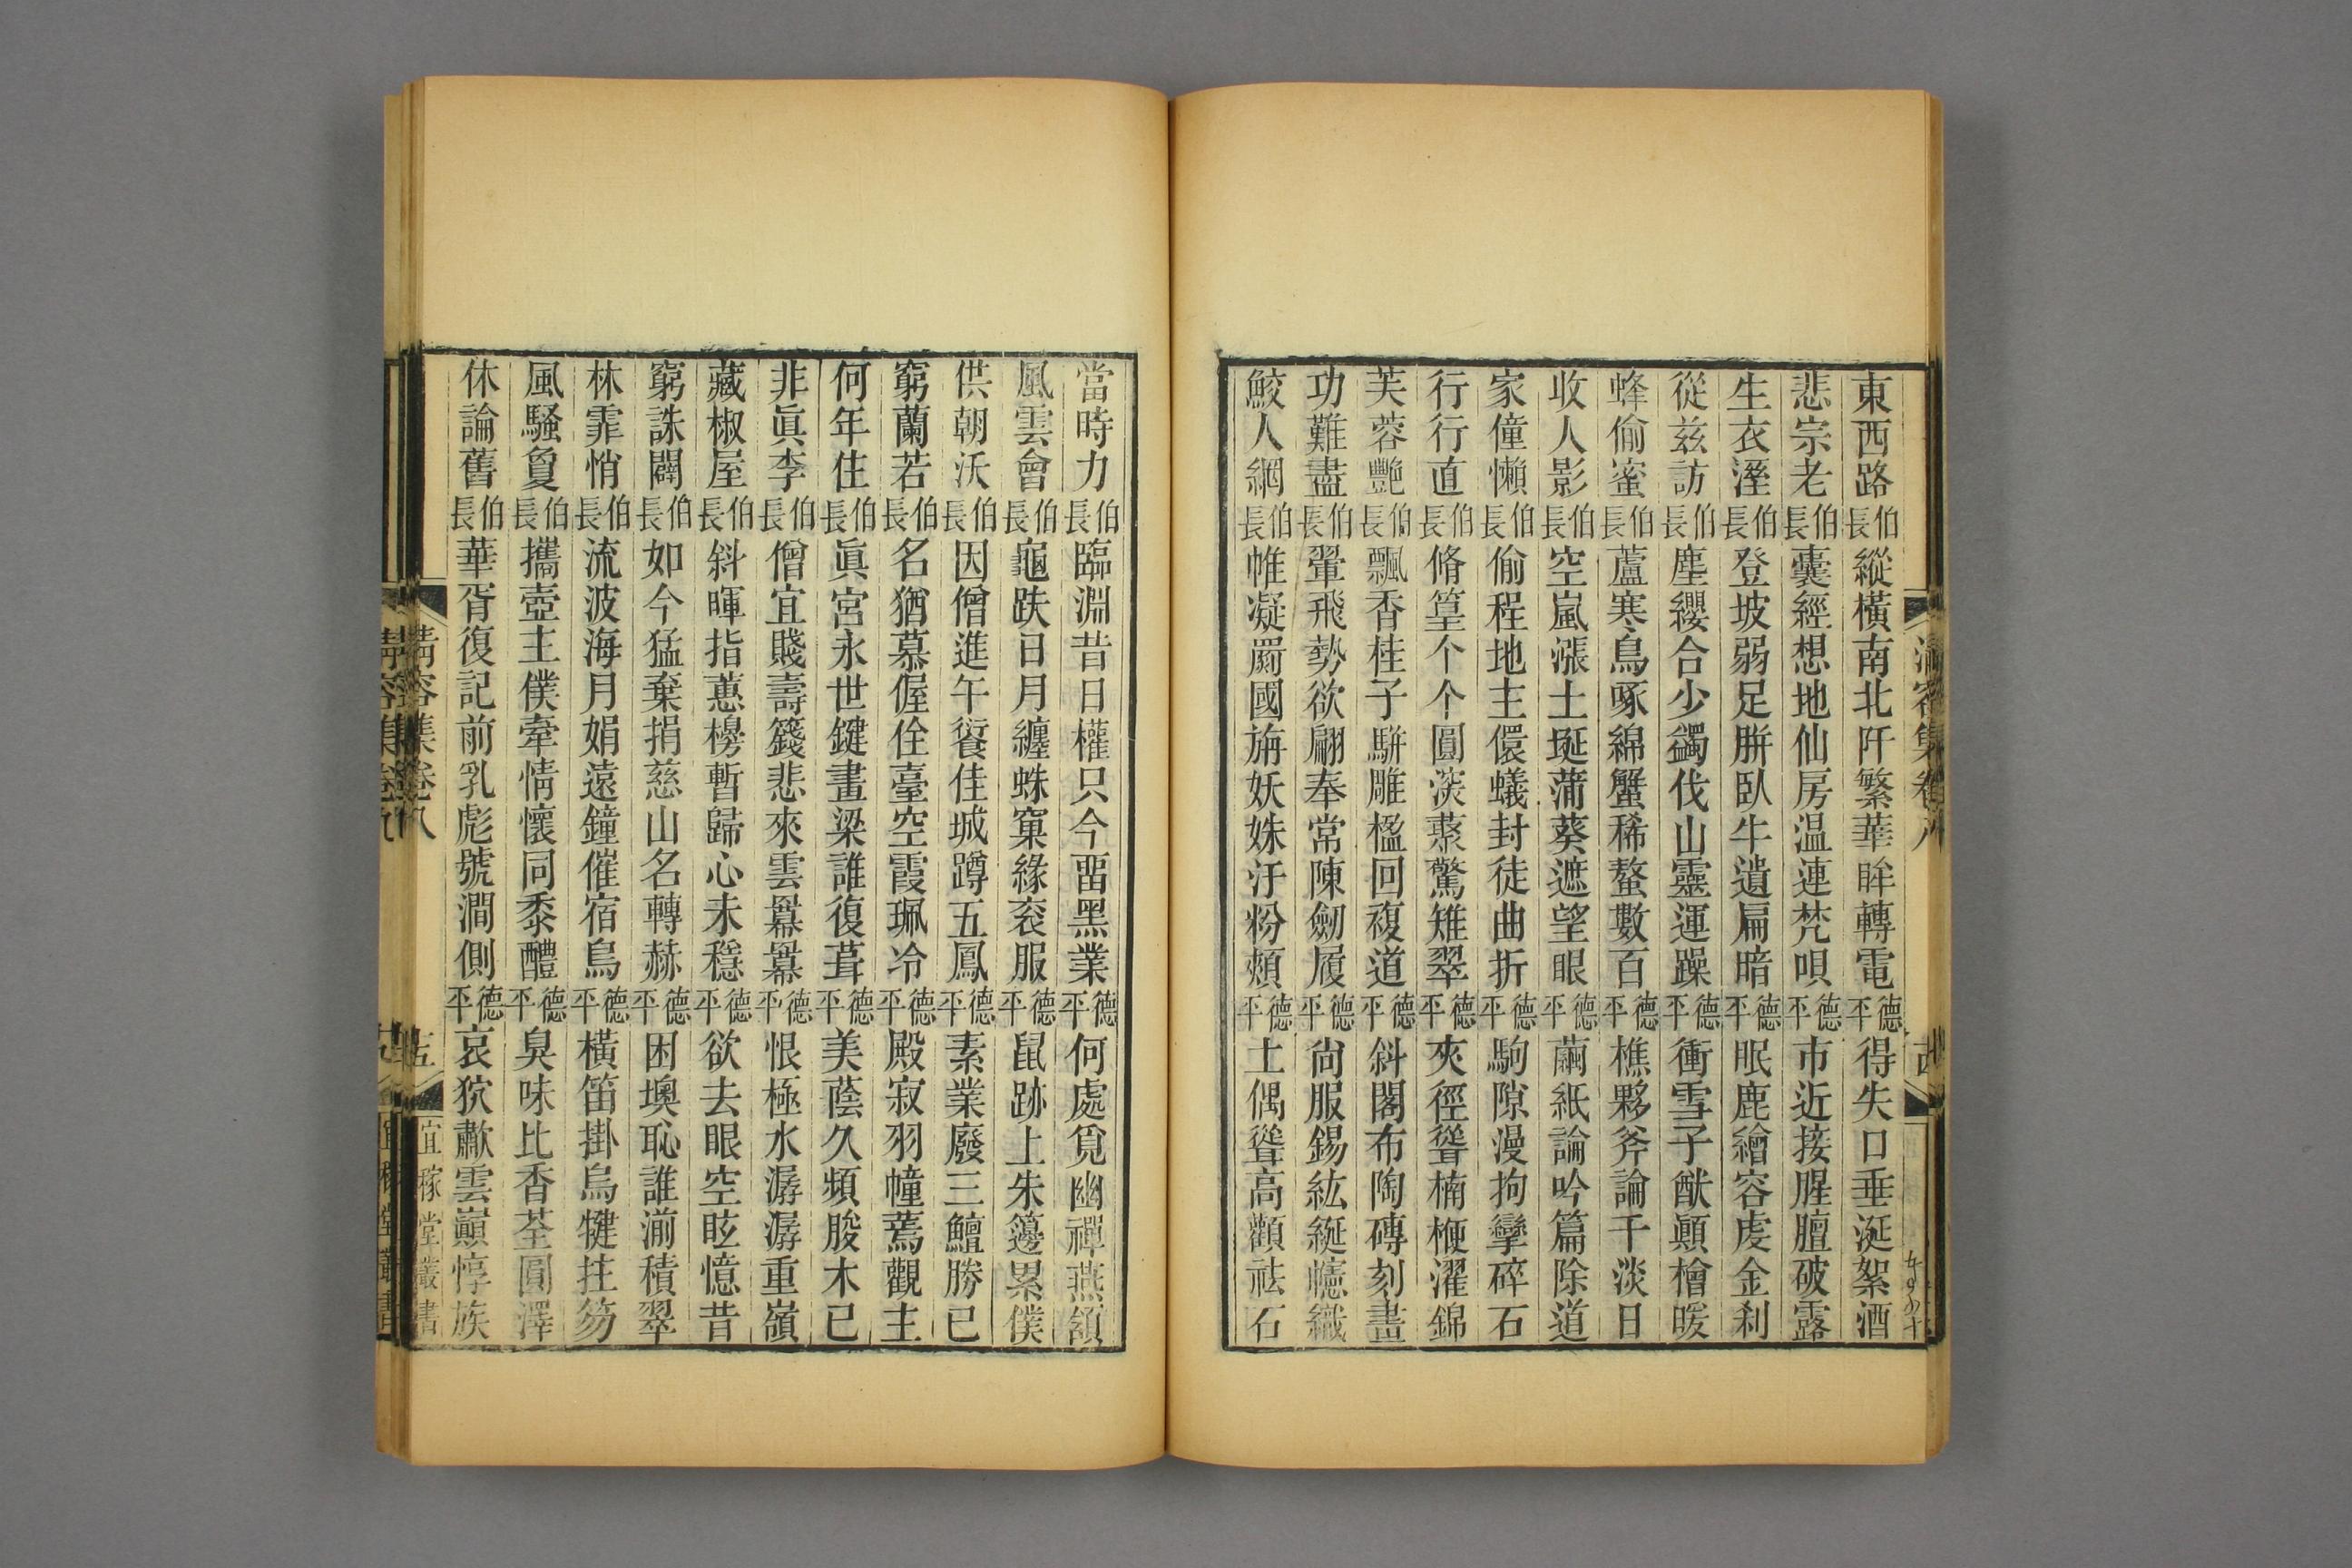 東西路伯長縱橫南北阡繁華眸轉電德平得失口垂涎絮酒
悲宗老伯長囊經想地仙房温連梵唄德平市近接腥膻破露
生衣溼伯長登坡弱足胼臥牛遺扁暗德平眠鹿繪容虔金刹
從兹訪伯長塵纓合少蠲伐山靈運躁德平衝雪子猷顚檜暖
蜂偷蜜伯長蘆寒鳥啄綿蟹稀螯數百德平樵夥斧論千淡日
收人影伯長空嵐漲土埏蒲葵遮望眼德平繭紙論吟篇除道
家僮懶伯長偷程地主儇蟻封徒曲折德平駒隙漫拘攣碎石
行行直伯長脩篁个个圓淡菉驚雉翠德平夾徑聳楠楩濯錦
芙蓉艷伯長飄香桂子駢雕楹回複道德平斜閣布陶磚刻畫
功難盡伯長翬飛勢欲翩奉常陳劒履德平尙服錫紘綖幰織
鮫人網伯長帷凝罽國旃妖姝汙粉頰德平土偶聳高顴祛石
當時力伯長臨淵昔日權只今畱黑業德平何處覓幽禪燕頷
風雲會伯長龜趺日月纏蛛窠緣衮服德平鼠跡上朱籩累僕
供朝沃伯長因僧進午餐佳城蹲五鳳德平素業廢三鱣勝已
窮蘭若伯長名猶慕偓佺臺空霞珮冷德平殿寂羽幢蔫觀主
何年住伯長眞宮永世鍵畫梁誰復葺德平美蔭久頻朘木已
非眞李伯長僧宜賤壽籛悲來雲羃羃德平恨極水潺潺重嶺
藏椒屋伯長斜暉指蕙櫋暫歸心未穩德平欲去眼空眩憶昔
窮誅闢伯長如今猛棄捐慈山名轉赫德平困墺恥誰湔積翠
林霏悄伯長流波海月娟遠鐘催宿鳥德平橫笛掛烏犍拄笏
風騷敻伯長攜壺主僕牽情懷同黍醴德平臭味比香荃圓澤
休論舊伯長華胥復記前乳彪號澗側德平哀狖嘯雲巔惇族
清容集卷八
五
宜稼堂叢書